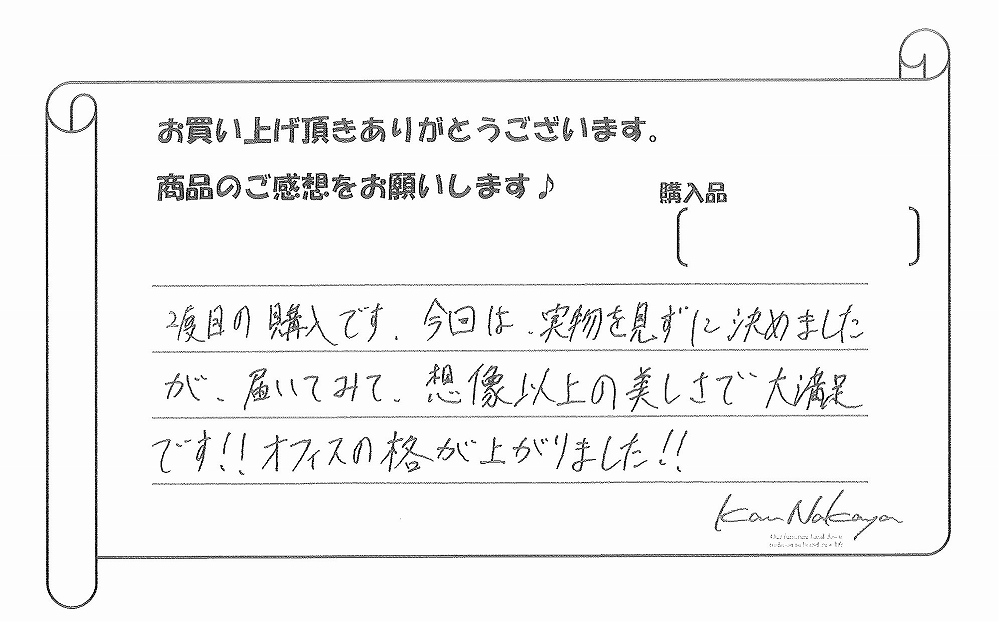 お買い上げ頂きありがとうございます。
商品のご感想をお願いします♪
購入品
2度目の購入です。今回は、実物を見ずに決めました
が、届いてみて、想像以上の美しさで大満足
です!!オフィスの格が上がりました!!
Kan Nakaya